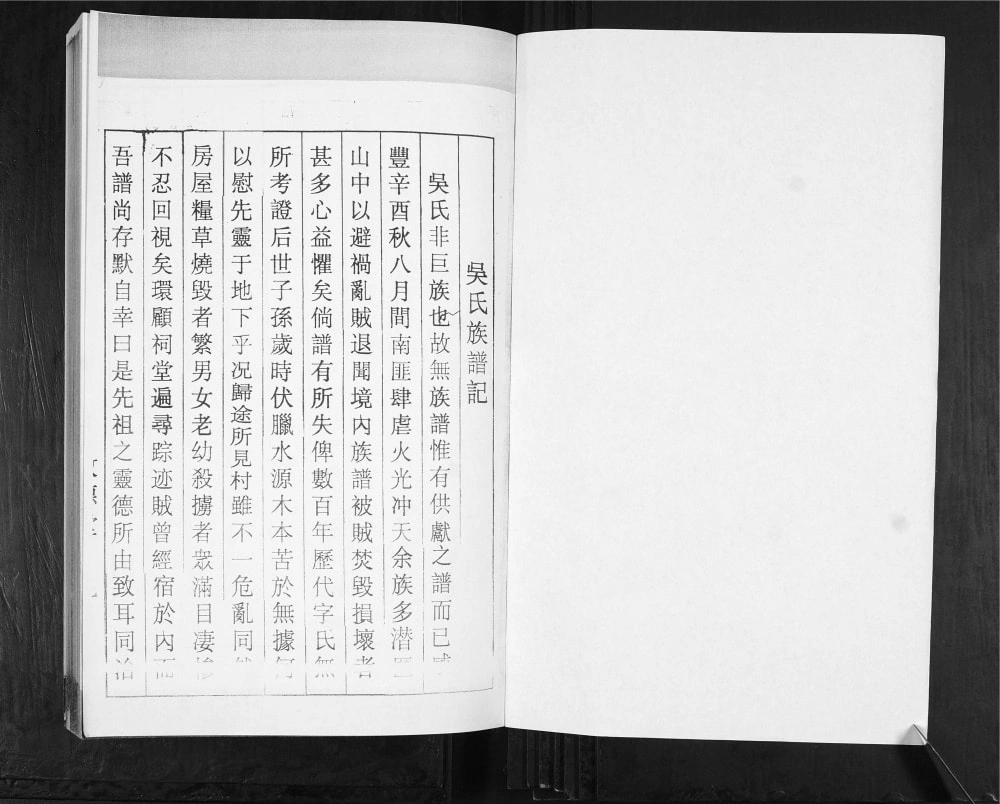 吳氏族譜記
吳氏非巨族也故無族譜惟有供獻之譜而已
豐辛酉秋八月間南匪肆虐火光冲天余族多潛
山中以避禍亂賊退聞境內族譜被賊焚毀損壞者
甚多心益懼矣倘譜有所失俾數百年歷代字氏無
所考證后世子孫歲時伏臘水源木本苦於無據何
以慰先靈于地下乎况歸途所見村雖不一危亂同
房屋糧草燒毀者繁男女老幼殺擄者眾滿目凄慘
不忍回視矣環顧祠堂遍尋踪迹賊曾經宿於內而
吾譜尚存默自幸曰是先祖之靈德所由致耳同治